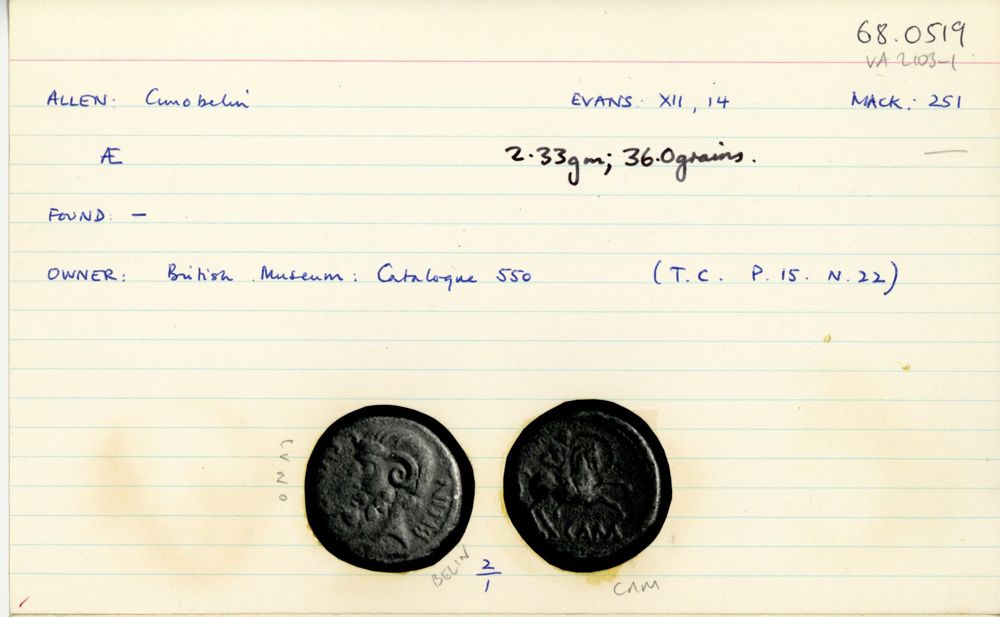 68.0519
VA 2103-1
ALLEN: Cunobelin EVANS: XII, 14 MACK: 251
Æ 2.33gm; 36.0grains. —
FOUND: —
OWNER: British Museum: Catalogue 550 (T.C. P.15. N.22)
CVNO
BELIN
CAM
BELIN
2
1
CAM